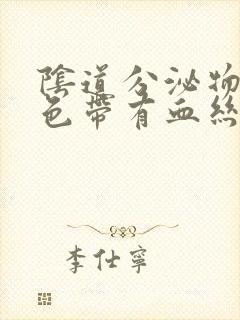 陰道分泌物
色帶有血絲
李仕寧